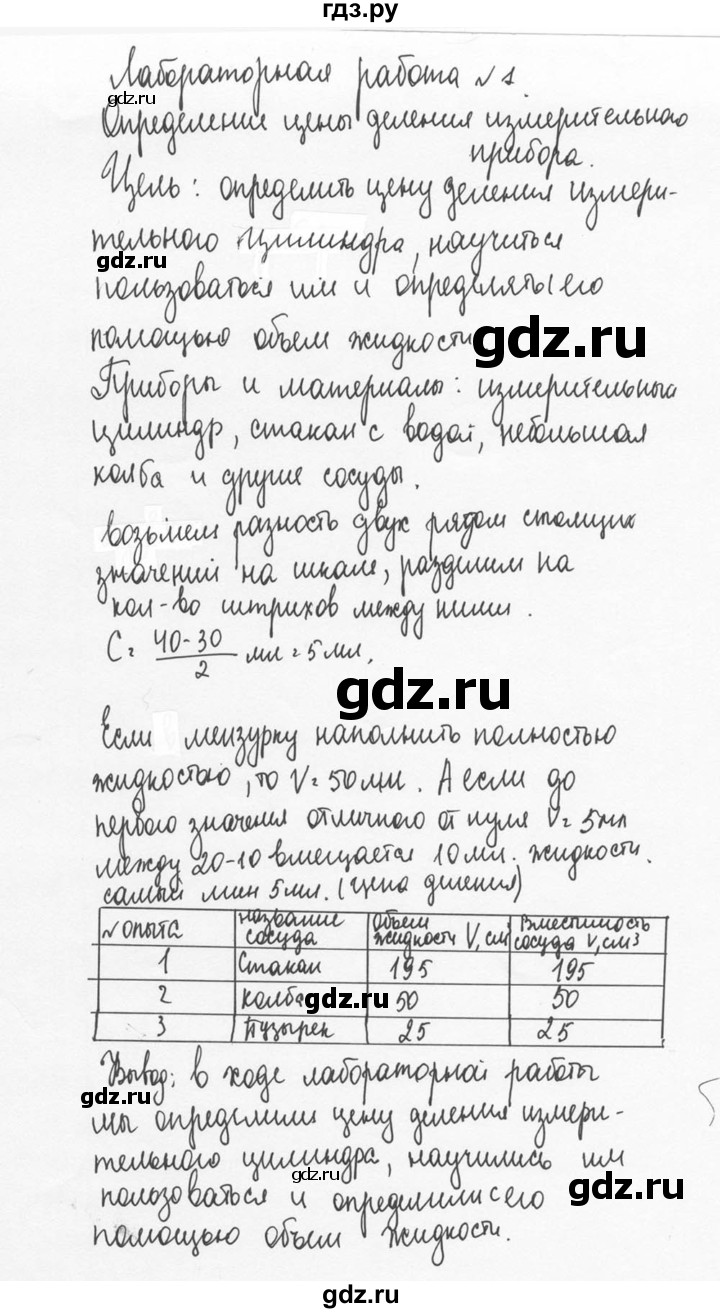 гдз.ру
Лабораторная работа №1
gdz.ru
Определение цены деления измерительного
прибора.
Цель: определить цену деления измери-
тельного цилиндра, научиться
gdz.ru
пользоваться им и определять с его
помощью объем жидкости
gdz.ru
Приборы и материалы: измерительный
цилиндр, стакан с водой, небольшая
колба и другие сосуды.
возьмем разность двух рядом стоящих
значений на шкале, разделим на
кол-во штрихов между ними.
C = 40-30/2 мл = 5 мл.
gdz.ru
Если мензурку наполнить полностью
жидкостью, то V = 50 мл. А если до
первого значения отличного от нуля V = 5 мл
между 20-10 вмещается 10 мл. жидкости.
самый мин 5 мл. (цена деления)
№ опыта название сосуда Объем жидкости V, см³ Вместимость сосуда V, см³
1 Стакан 195 195
2 колба 50 50
gdz.ru
3 Пузырек 25 25
Вывод: в ходе лабораторной работы
gdz.ru
мы определили цену деления измери-
тельного цилиндра, научились им
gdz.ru
пользоваться и определили с его
gdz.ru
помощью объем жидкости.
gdz.ru